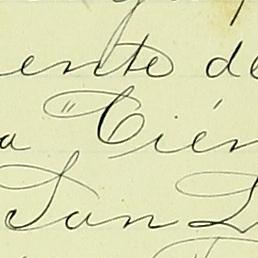 ente de
a "Cién
San L